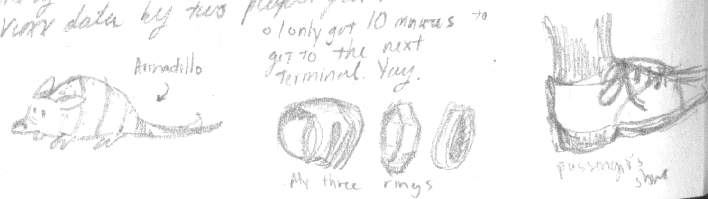 data by two
I only got 10 minutes to
get to the next
terminal. Yay.
Armadillo
My three rings
passenger's
shoe